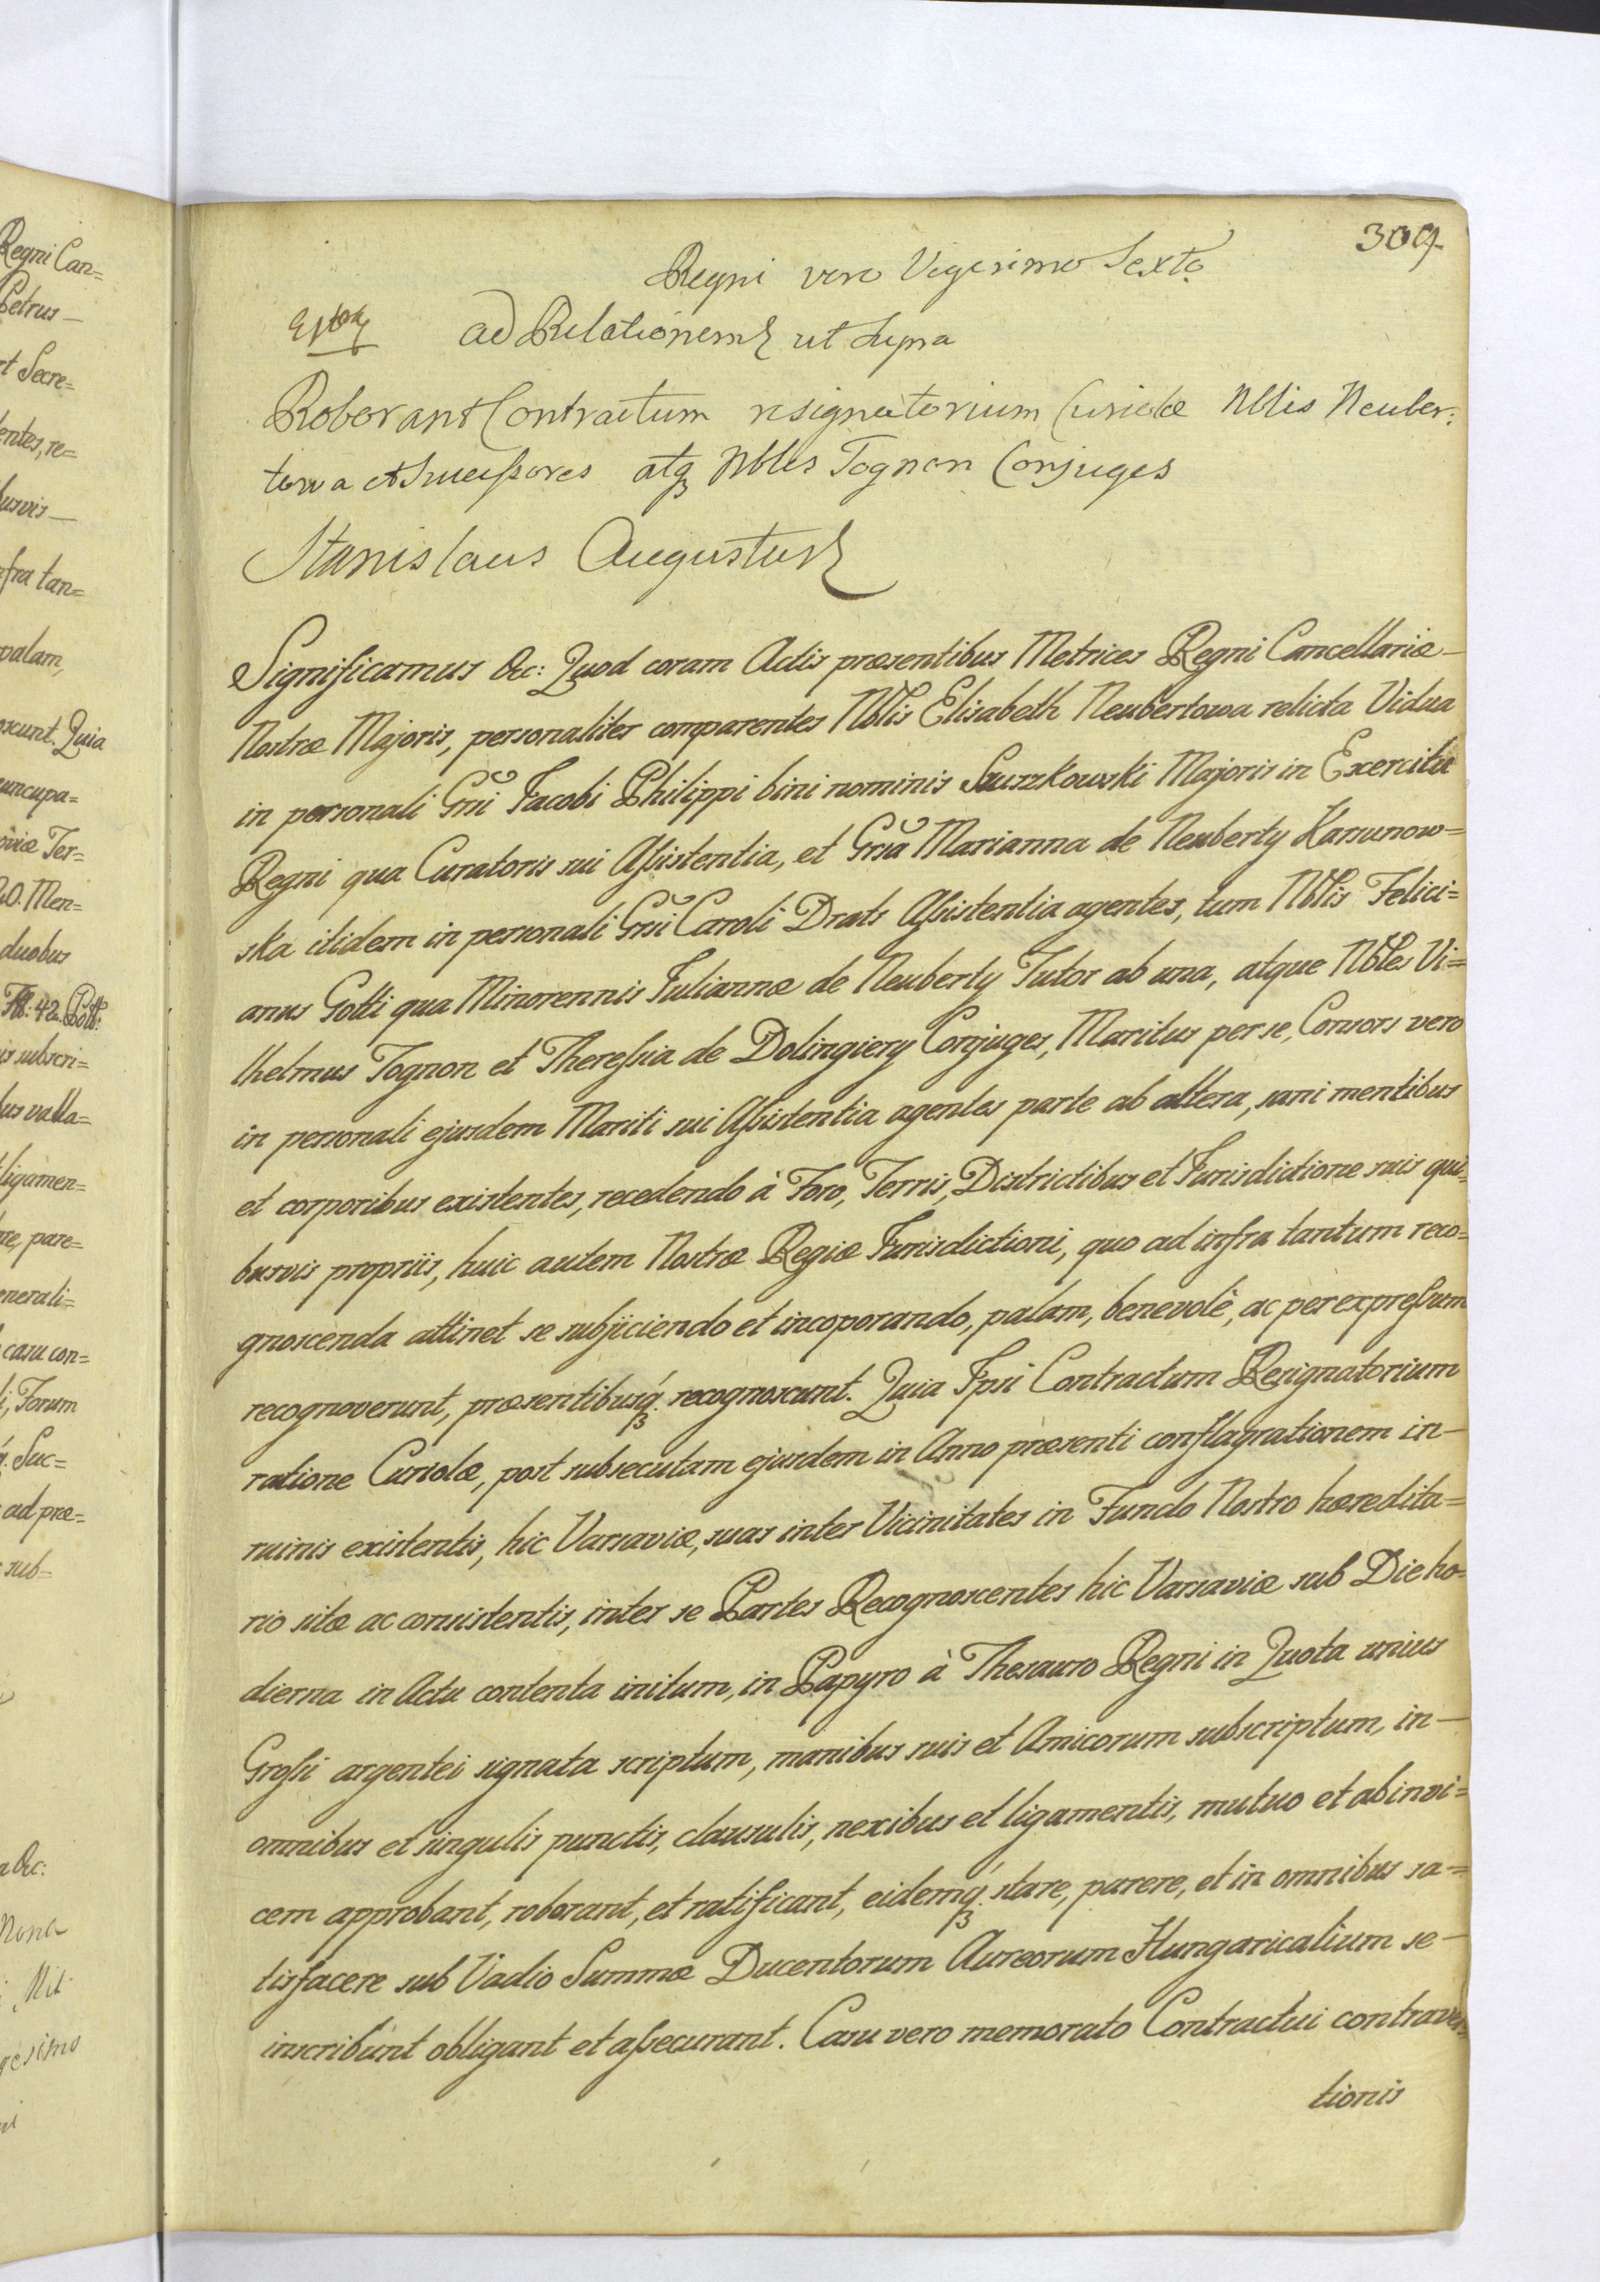 309.
Regni vero Vigesimo Sexto
ad Relationem ut supra
Roborant Contractum resignatorium Curiolæ Nblis Neuber:
towa et Successores atq Nbles Tognon Conjuges
Stanislaus Augustus
Significamus &c: Quod coram Actis præsentibus Metrices Regni Cancellariæ
Nostræ Majoris, personaliter comparentes Nblis Elisabeth Neubertowa relicta Vidua
in personali Gni Jacobi Philippi bini nominis Suszkowski Majoris in Exercitu
Regni qua Curatoris sui Assistentia, et Grsa Marianna de Neuberty Karsunow=
ska itidem in personali Grsi Caroli Drats Assistentia agentes, tum Nblis Felici=
anus Gotti qua Minorennis Juliannæ de Neuberty Tutor ab una, atque Nbles Vi=
lhelmus Tognon et Theressia de Dolingiery Conjuges, Maritus per se, Consors vero
in personali ejusdem Mariti sui Assistentia agentes parte ab altera, sani mentibus
et corporibus existentes, recedendo à Foro, Terris, Districtibus et Jurisdictione suis qui=
busvis propriis, huic autem Nostræ Regiæ Jurisdictioni, quo ad infra tantum reco=
gnoscenda attinet se subjiciendo et incoporando, palam, benevolè, ac per expressum
recognoverunt, præsentibusq recognoscunt. Quia Ipsi Contractum Resignatorium
ratione Curiolæ, post subsecutam ejusdem in Anno præsenti conflagrationem in—
ruinis existentis, hic Varsaviæ, suas inter Vicinitates in Fundo Nostro hæredita=
rio sitæ ac consistentis, inter se Partes Recognoscentes hic Varsaviæ sub Die ho=
dierna in Actu contenta initum, in Papyro à Thesauro Regni in Quota unius
Grossi argentei signata scriptum, manibus suis et Amicorum subscriptum, in—
omnibus et singulis punctis, clausulis, nexibus et ligamentis, mutuo et ab invi=
cem approbant, roborant, et ratificant, eidemq stare, parere, et in omnibus sa=
tisfacere sub Vadio Summæ Ducentorum Aureorum Hungaricalium se—
inscribunt obligant et assecurant. Casu vero memorato Contractui contraven
tionis